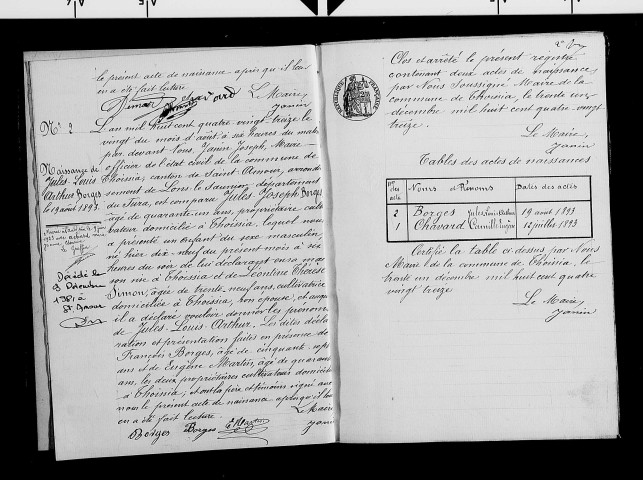 le présent acte de naissance après qu'il leur
en a été fait lecture.
Simon Chavard Le Maire,
Janin
N° 2
Naissance de
Jules Louis
Arthur Borges
le 19 août 1893.
Décédé le
3 Décembre
à
St Amour
L'an mil huit cent quatre vingt-treize le
vingt du mois d'août à six heures du matin
par devant nous, Janin Joseph, Maire
officier de l'état civil de la commune de
Thoissia, canton de Saint Amour, arrondis
sement de Lons le Saunier, département
du Jura, est comparu Jules Joseph Borges
âgé de quarante un ans, propriétaire culti
vateur domicilié à Thoissia, lequel nous
a présenté un enfant du sexe masculin,
né hier dix-neuf du présent mois à six
heures du soir de lui déclarant en sa mai
son sise à Thoissia et de Léontine Thérèse
Simon, âgée de trente neuf ans, cultivatrice
domiciliée à Thoissia, son épouse, et auquel
il a déclaré vouloir donner les prénoms
de Jules-Louis-Arthur. Les dites décla
ration et présentation faites en présence de
François Borges, âgé de cinquante sept
ans et de Eugène Martin, âgé de quarante
ans, les deux propriétaires cultivateurs domiciliés
à Thoissia; et ont le père et témoins signé avec
nous le présent acte de naissance après qu'il leur
en a été fait lecture.
Le Maire
Borges Borges E Martin Janin
Clos et arrêté le présent registre
contenant deux actes de naissance,
par Nous soussigné Maire de la
commune de Thoissia, le trente un
décembre mil huit cent quatre vingt
treize.
Le Maire,
Janin
RÉPUBLIQUE FRANÇAISE
Tables des actes de naissances
Nos des acte Noms et Prénoms Dates des actes
2 Borges Jules Louis Arthur 19 août 1893
1 Chavard Camille 12 juillet 1893
Certifié la table ci-dessus par Nous
Maire de la commune de Thoissia, le
trente un décembre mil huit cent quatre
vingt treize
Le Maire,
Janin